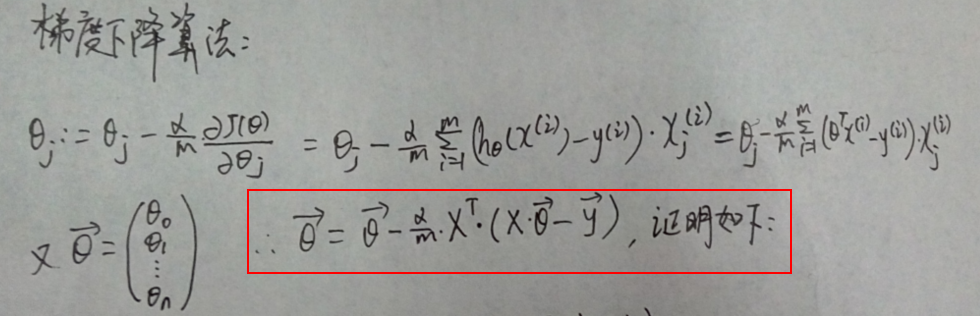 梯度下降算法:
θj := θj - α/m ∂J(θ)/∂θj = θj - α/m Σ_{i=1}^{m} (hθ(x^(i)) - y^(i)) · xj^(i) = θj - α/m Σ_{i=1}^{m} (θ^T x^(i) - y^(i)) · xj^(i)
又 θ⃗ = (θ0 θ1 ⋮ θn) ∴ θ⃗ = θ⃗ - α/m · X^T · (X · θ⃗ - y⃗), 证明如下: